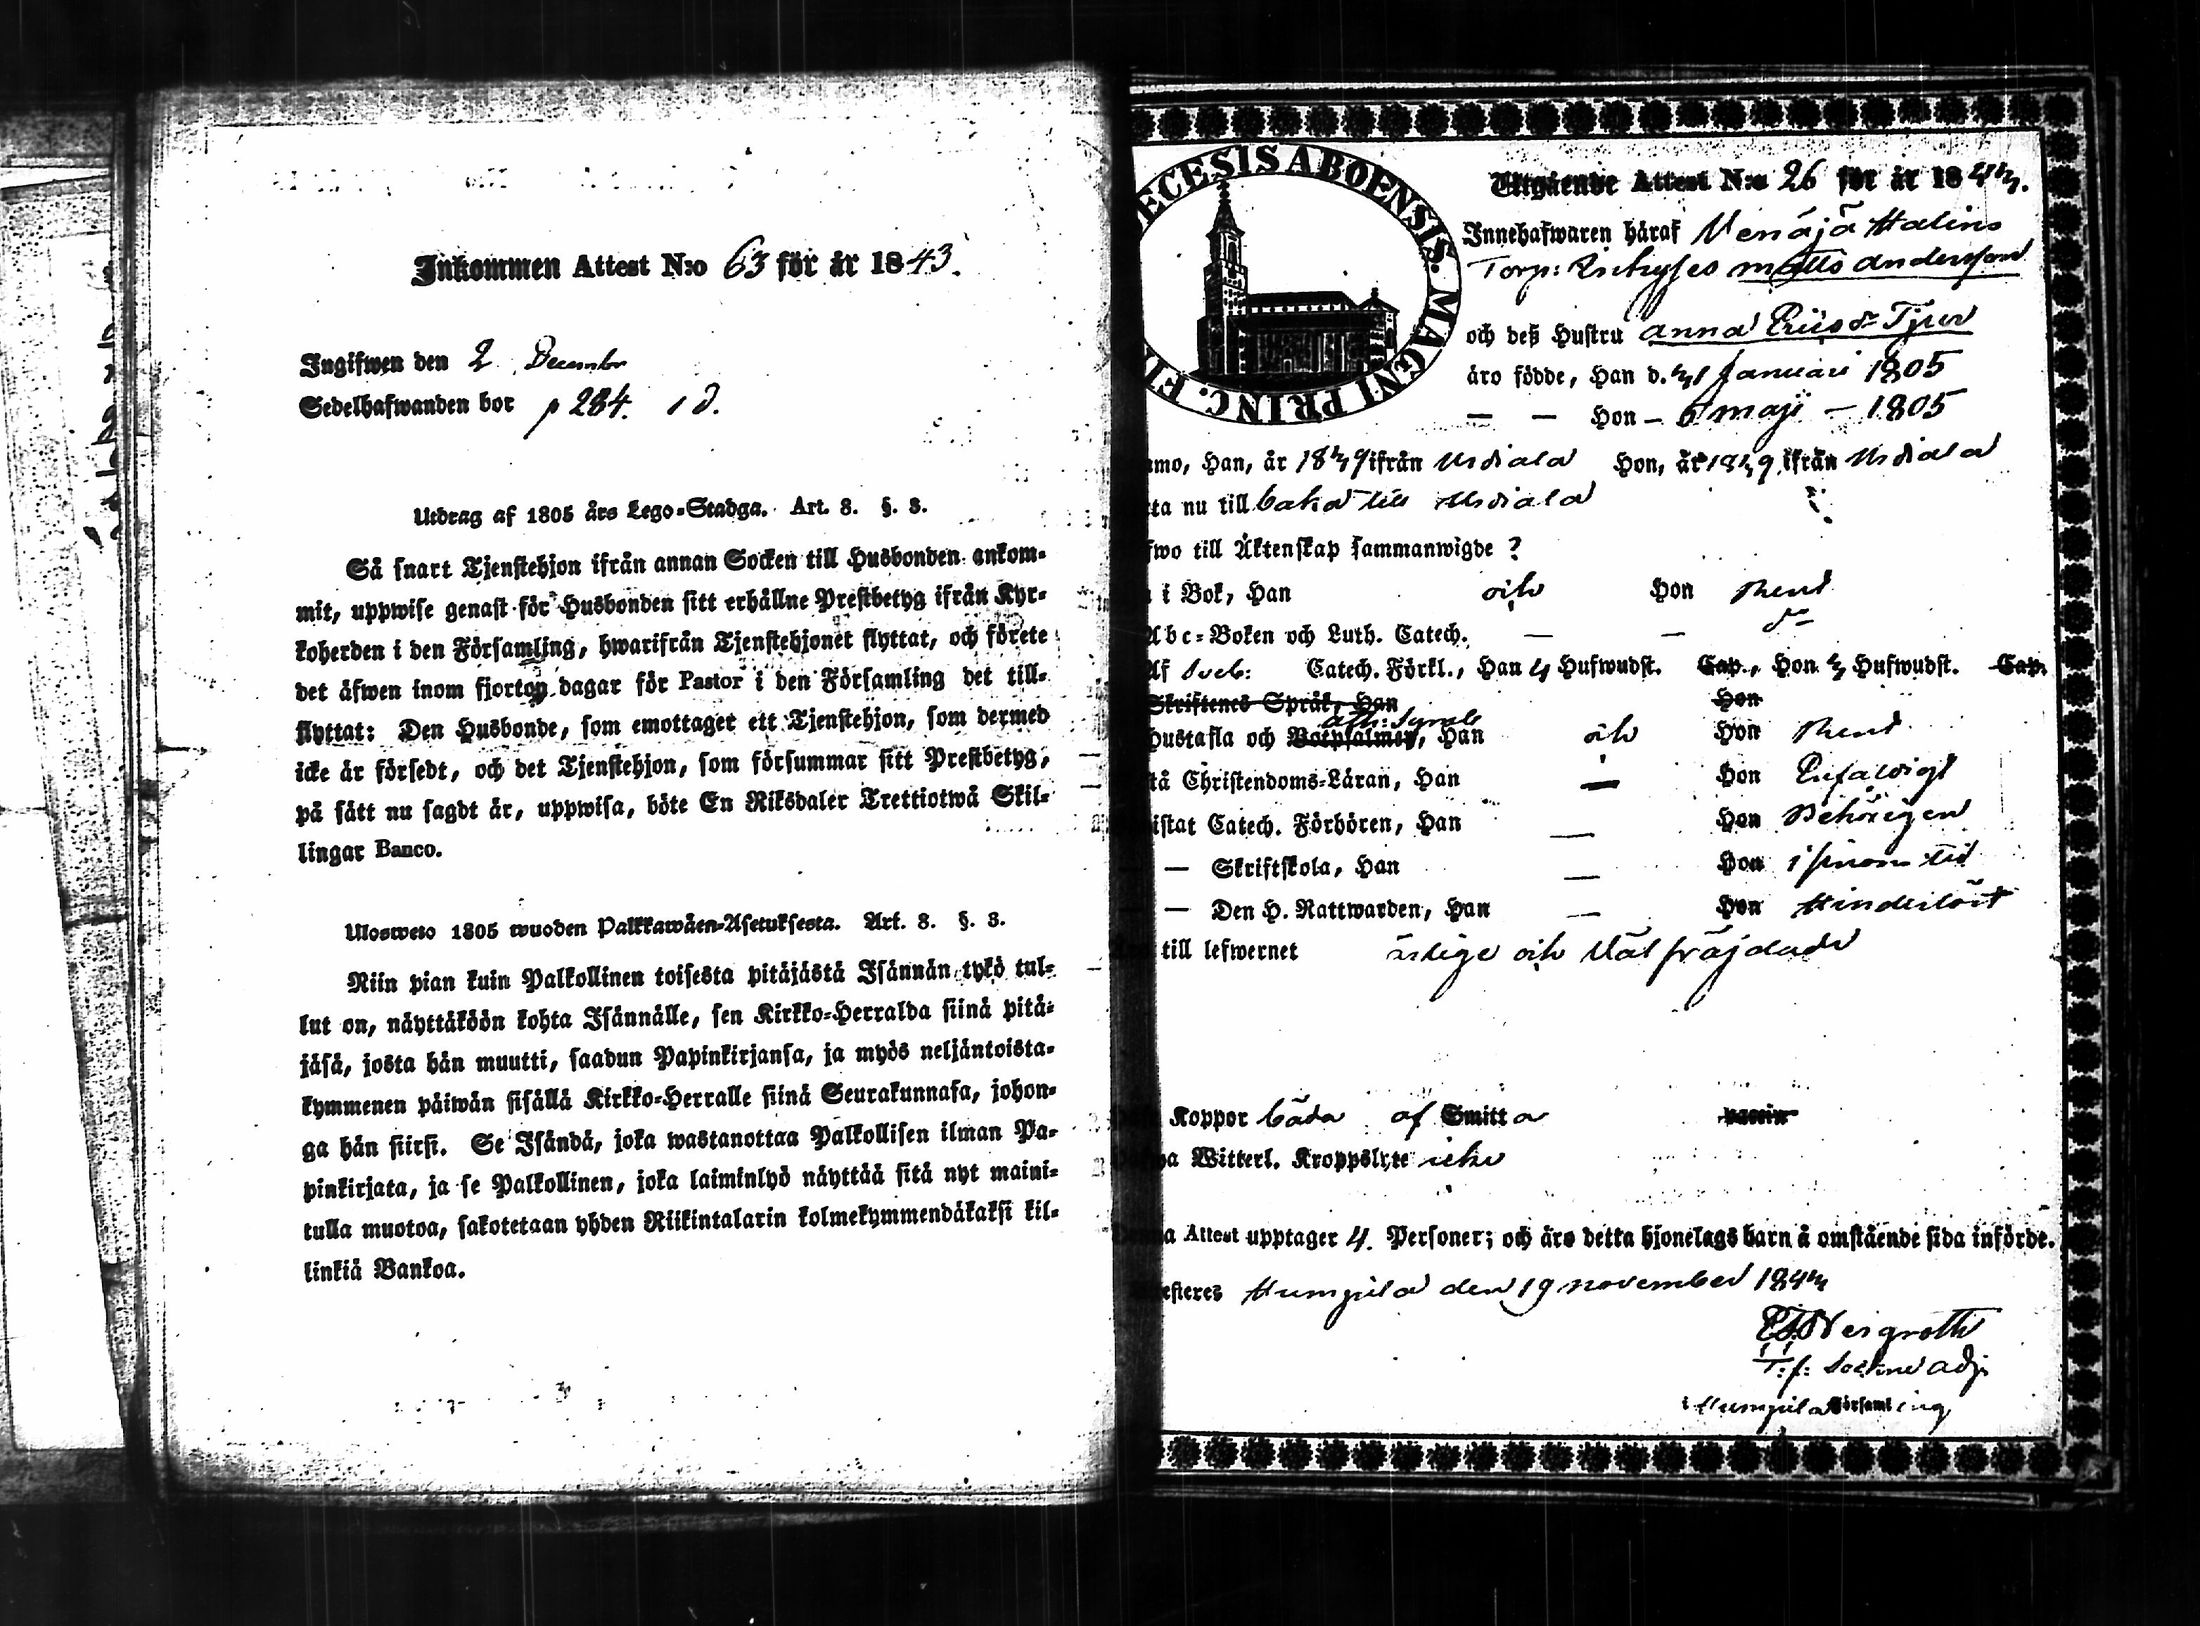 Inkommen Attest N:o 63 för år 1843.
Ingifwen den 2 Decembr
Sedelhafwanden bor p 284. 1 d.
Utdrag af 1805 års Lego-Stadga. Art. 8. §. 3.
Så snart Tjenstehjon ifrån annan Socken till Husbonden ankom-
mit, uppwise genast för Husbonden sitt erhållne Prestbetyg ifrån Kyr-
koherden i den Församling, hwarifrån Tjenstehjonet flyttat, och förete
det äfwen inom fjorton dagar för Pastor i den Församling det till-
flyttat: Den Husbonde, som emottager ett Tjenstehjon, som dermed
icke är försedt, och det Tjenstehjon, som försummar sitt Prestbetyg,
på sätt nu sagdt är, uppwisa, böte En Riksdaler Trettiotwå Skil-
lingar Banco.
Ulosweto 1805 wuoden Palkkawäen-Asetuksesta. Art. 8. §. 3.
Niin pian kuin Palkollinen toisesta pitäjästä Isännän tykö tul-
lut on, näyttäköön kohta Isännälle, sen Kirkko-Herralda siinä pitä-
jäsä, josta hän muutti, saadun Papinkirjansa, ja myös neljäntoista-
kymmenen päiwän sisällä Kirkko-Herralle siinä Seurakunnasa, johon-
ga hän siirsi. Se Isändä, joka wastanottaa Palkollisen ilman Pa-
pinkirjata, ja se Palkollinen, joka laiminlyö näyttää sitä nyt maini-
tulla muotoa, sakotetaan yhden Riikintalarin kolmekymmendäkaksi kil-
linkiä Bankoa.
ECESIS ABOENSIS. MAGNI PRINC. FI
Utgående Attest N:o 26 för år 1843.
Innehafwaren häraf Venäjä Halins
Torp: matts andersson
och deß Hustru anna
äro födde, Han d. 31 Januari 1805
— — Hon - 6 maji - 1805
mo, Han, år 1839 ifrån Urdiala Hon, år 1839 ifrån Urdiala
ta nu till baka till Urdiala
fwo till Äktenskap sammanwigde ?
i Bok, Han och Hon Rent
Abc-Boken och Luth. Catech. — — do
Af Sveb: Catech. Förkl., Han 4 Hufwudst. Cap., Hon 3 Hufwudst. Cap.
Skriftenes Språk, Han Hon
ath: Symb
Hustafla och Botpsalmer, Han och Hon Rent
tå Christendoms-Läran, Han — Hon Enfaldigt
istat Catech. Förhören, Han — Hon Behörigen
— Skriftskola, Han — Hon i sinom tid
— Den H. Nattwarden, Han — Hon Hinderlöst
till lefwernet ärlige och Väl fräjdade
Koppor båda af Smitta vaccin
a Witterl. Kroppslyte icke
a Attest upptager 4. Personer; och äro detta hjonelags barn å omstående sida införde.
esteres Humpila den 19 november 1843
Neigroth
T: f: Sockne adj:
i Humpila Församling